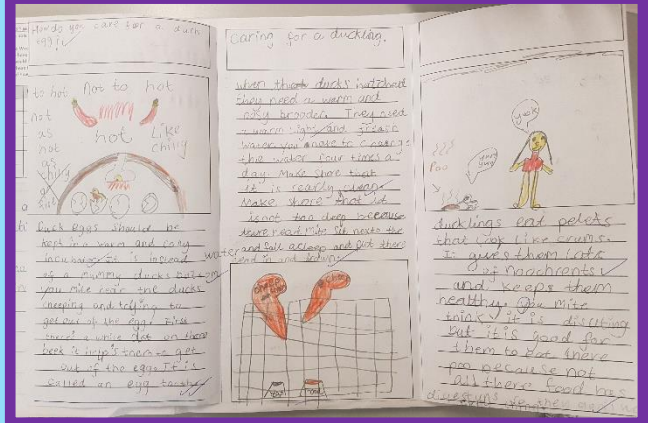 How do you care for a duck
egg?
to hot Not to hot
not
as
hot
as
hot Like
chilly
Duck eggs should be
kept in a warm and cosy
incubator. It is instead
of a mummy ducks bottom
you mite hear the ducks
cheeping and trying to
get out of the egg.
a white dot on there
beek it help's them to get
out if the eggs. It is
called an egg
Caring for a duckling.
When the ducks hatched
they need a warm and
cosy brooder. They need
a warm light and
water you have to
the water four times a
day. Make shore that
it is really clean.
Make shore that it
is not too deep because
there head mite sit next to the
water and fall asleep and
Food
yuck
Poo
yum
yum
ducklings eat pelets
that look like crums.
It gives them lots
of
and keeps them
healthy. You mite
think it is
but it is good for
them to eat there
poo because not
all there food has